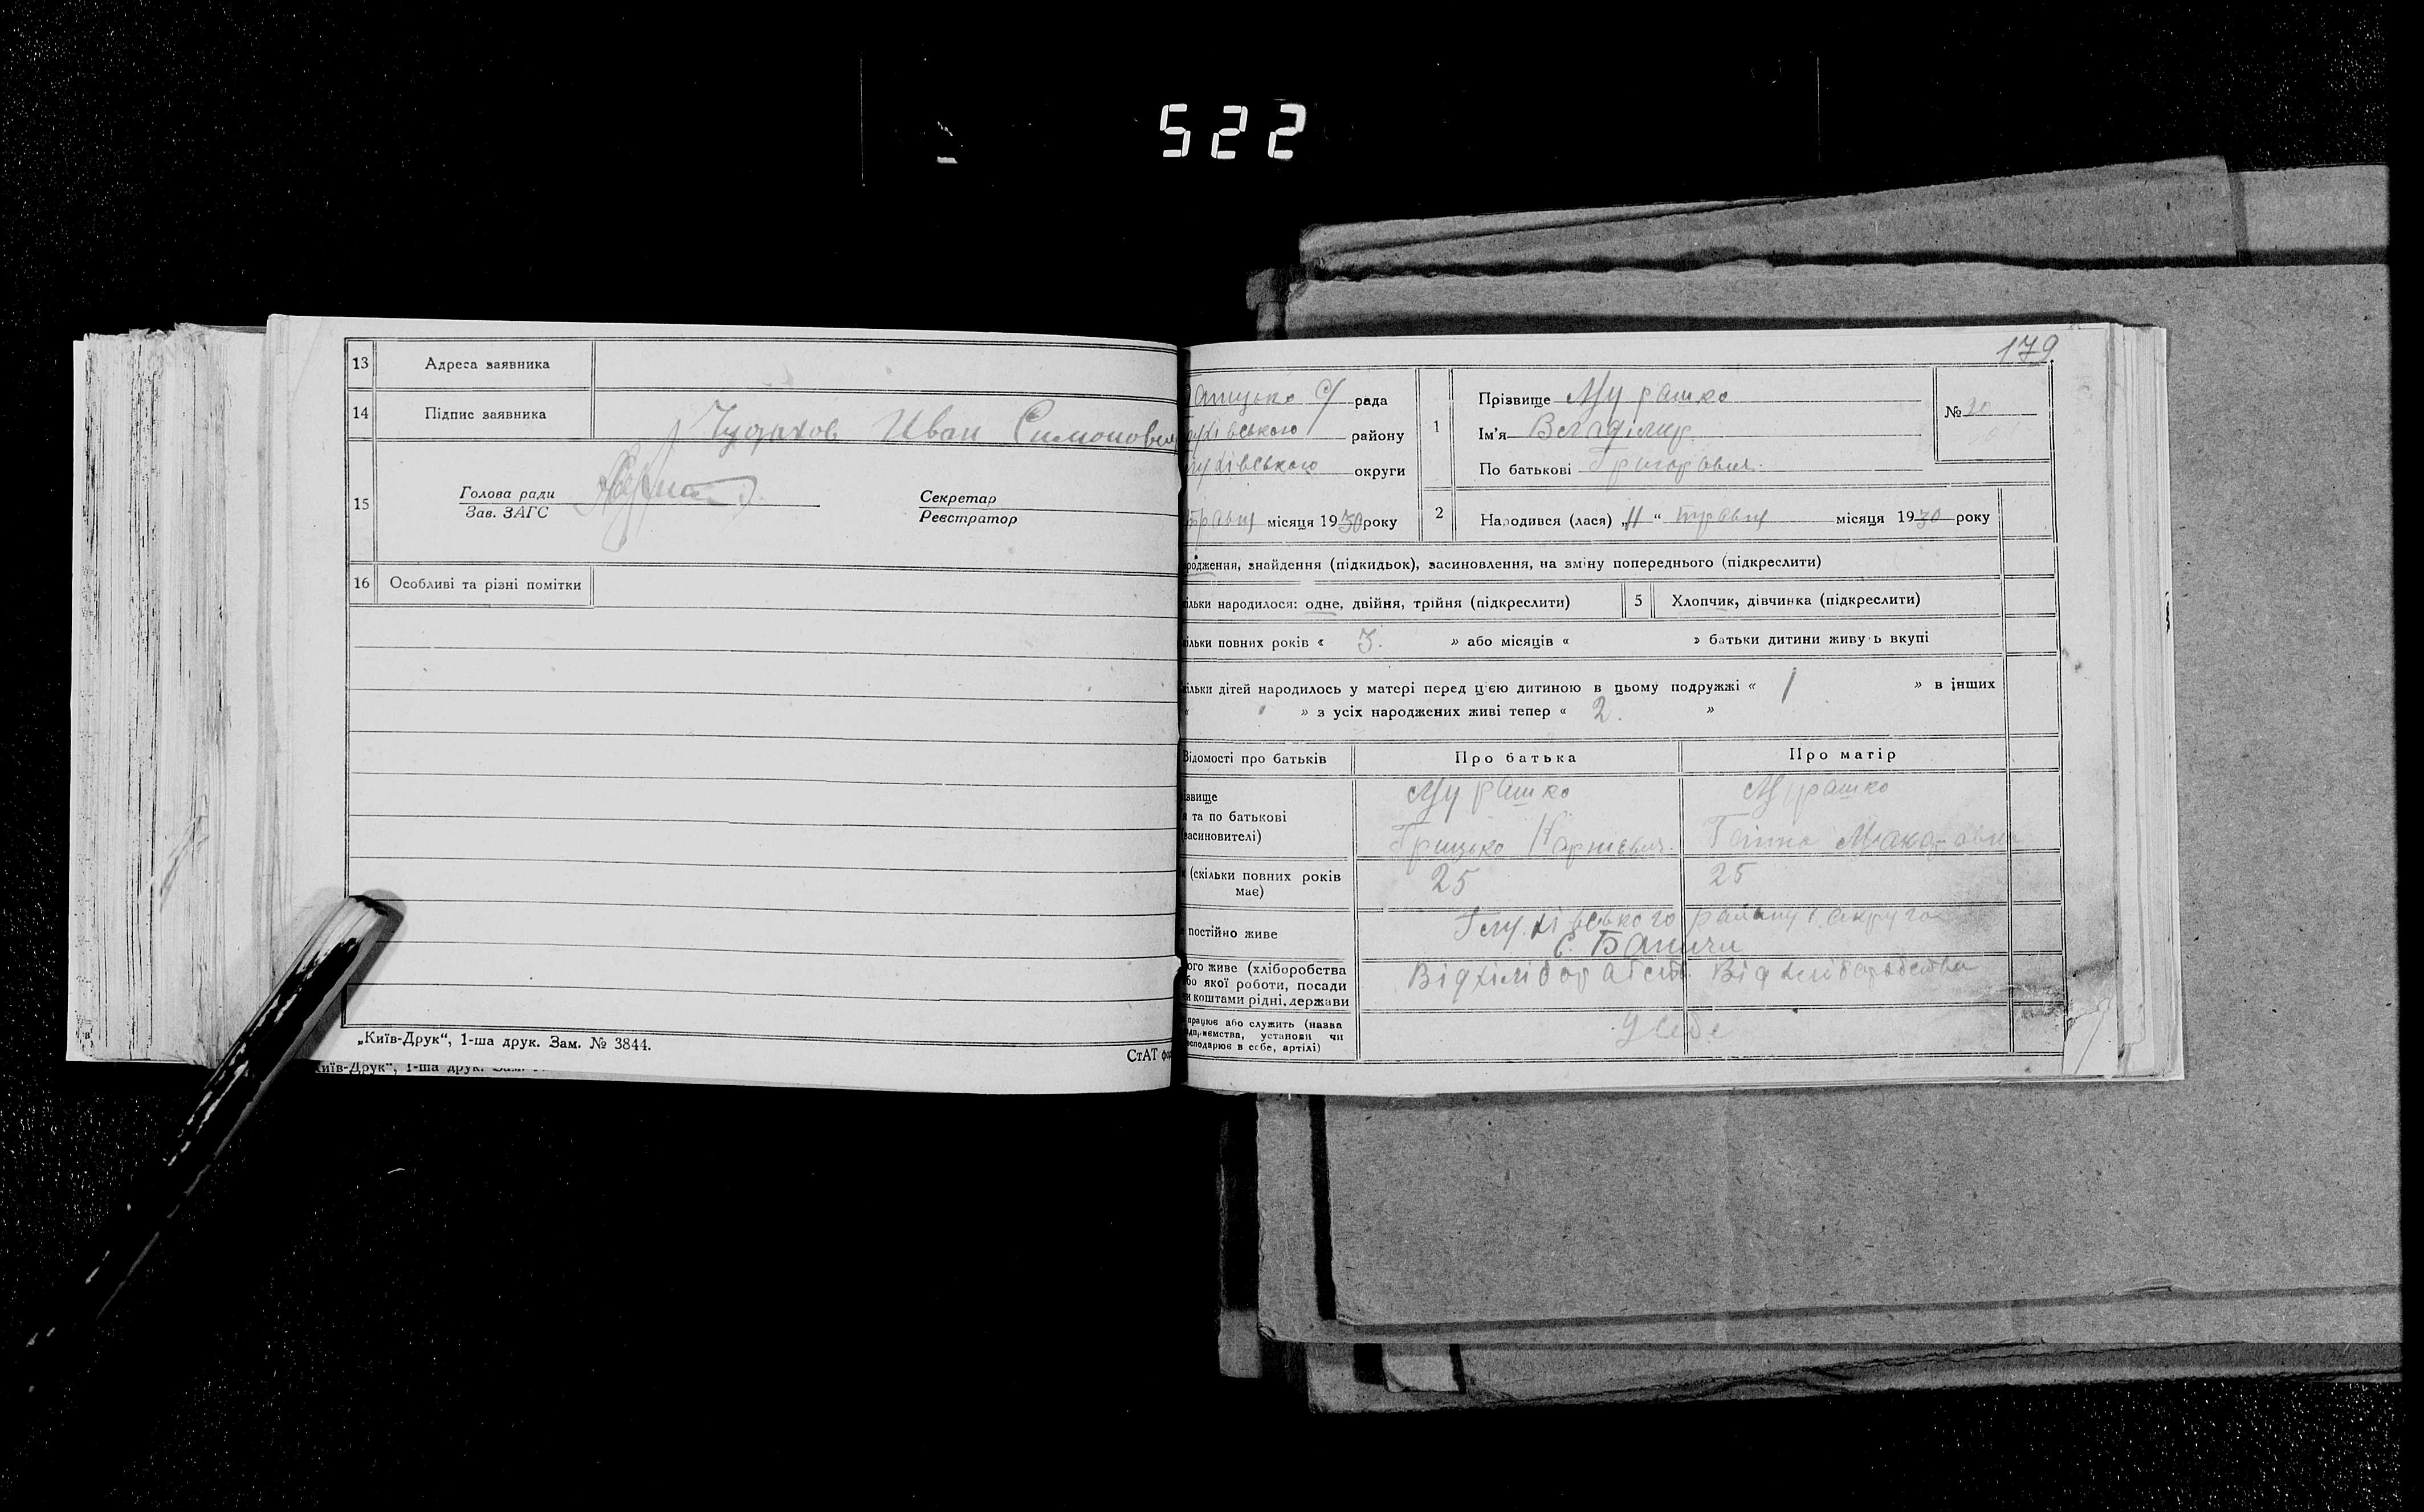 522
13 Адреса заявника
14 Підпис заявника Чудаков Иван Симонович
15 Голова ради
Зав. ЗАГС
Секретар
Реєстратор
16 Особливі та різні помітки
„Київ-Друк“, 1-ша друк. Зам. № 3844.
СтАТ
179
С/ рада
району
округи
травня місяця 1930 року
1 Прізвище Мурашко
Ім'я Владімир
По батькові Григорович
№ 20
2 Народився (лася) „11“ травня місяця 1930 року
родження, знайдення (підкидьок), засиновлення, на зміну попереднього (підкреслити)
ільки народилося: одне, двійня, трійня (підкреслити)
5 Хлопчик, дівчинка (підкреслити)
ільки повних років « 3 » або місяців « » батьки дитини живуть вкупі
ільки дітей народилось у матері перед цією дитиною в цьому подружжі « 1 » в інших
« » з усіх народжених живі тепер « 2 »
Відомості про батьків
Про батька
Про матір
звище
я та по батькові
(засиновителі)
Мурашко
Грицько
Мурашко
Ганна Макаровна
(скільки повних років має)
25
25
постійно живе
Глухівського району і округа
с. Баничи
ого живе (хліборобства
бо якої роботи, посади
и коштами рідні, держави
Від хліборобства
працює або служить (назва
ідприємства, установи чи
осподарює в себе, артілі)
У себе